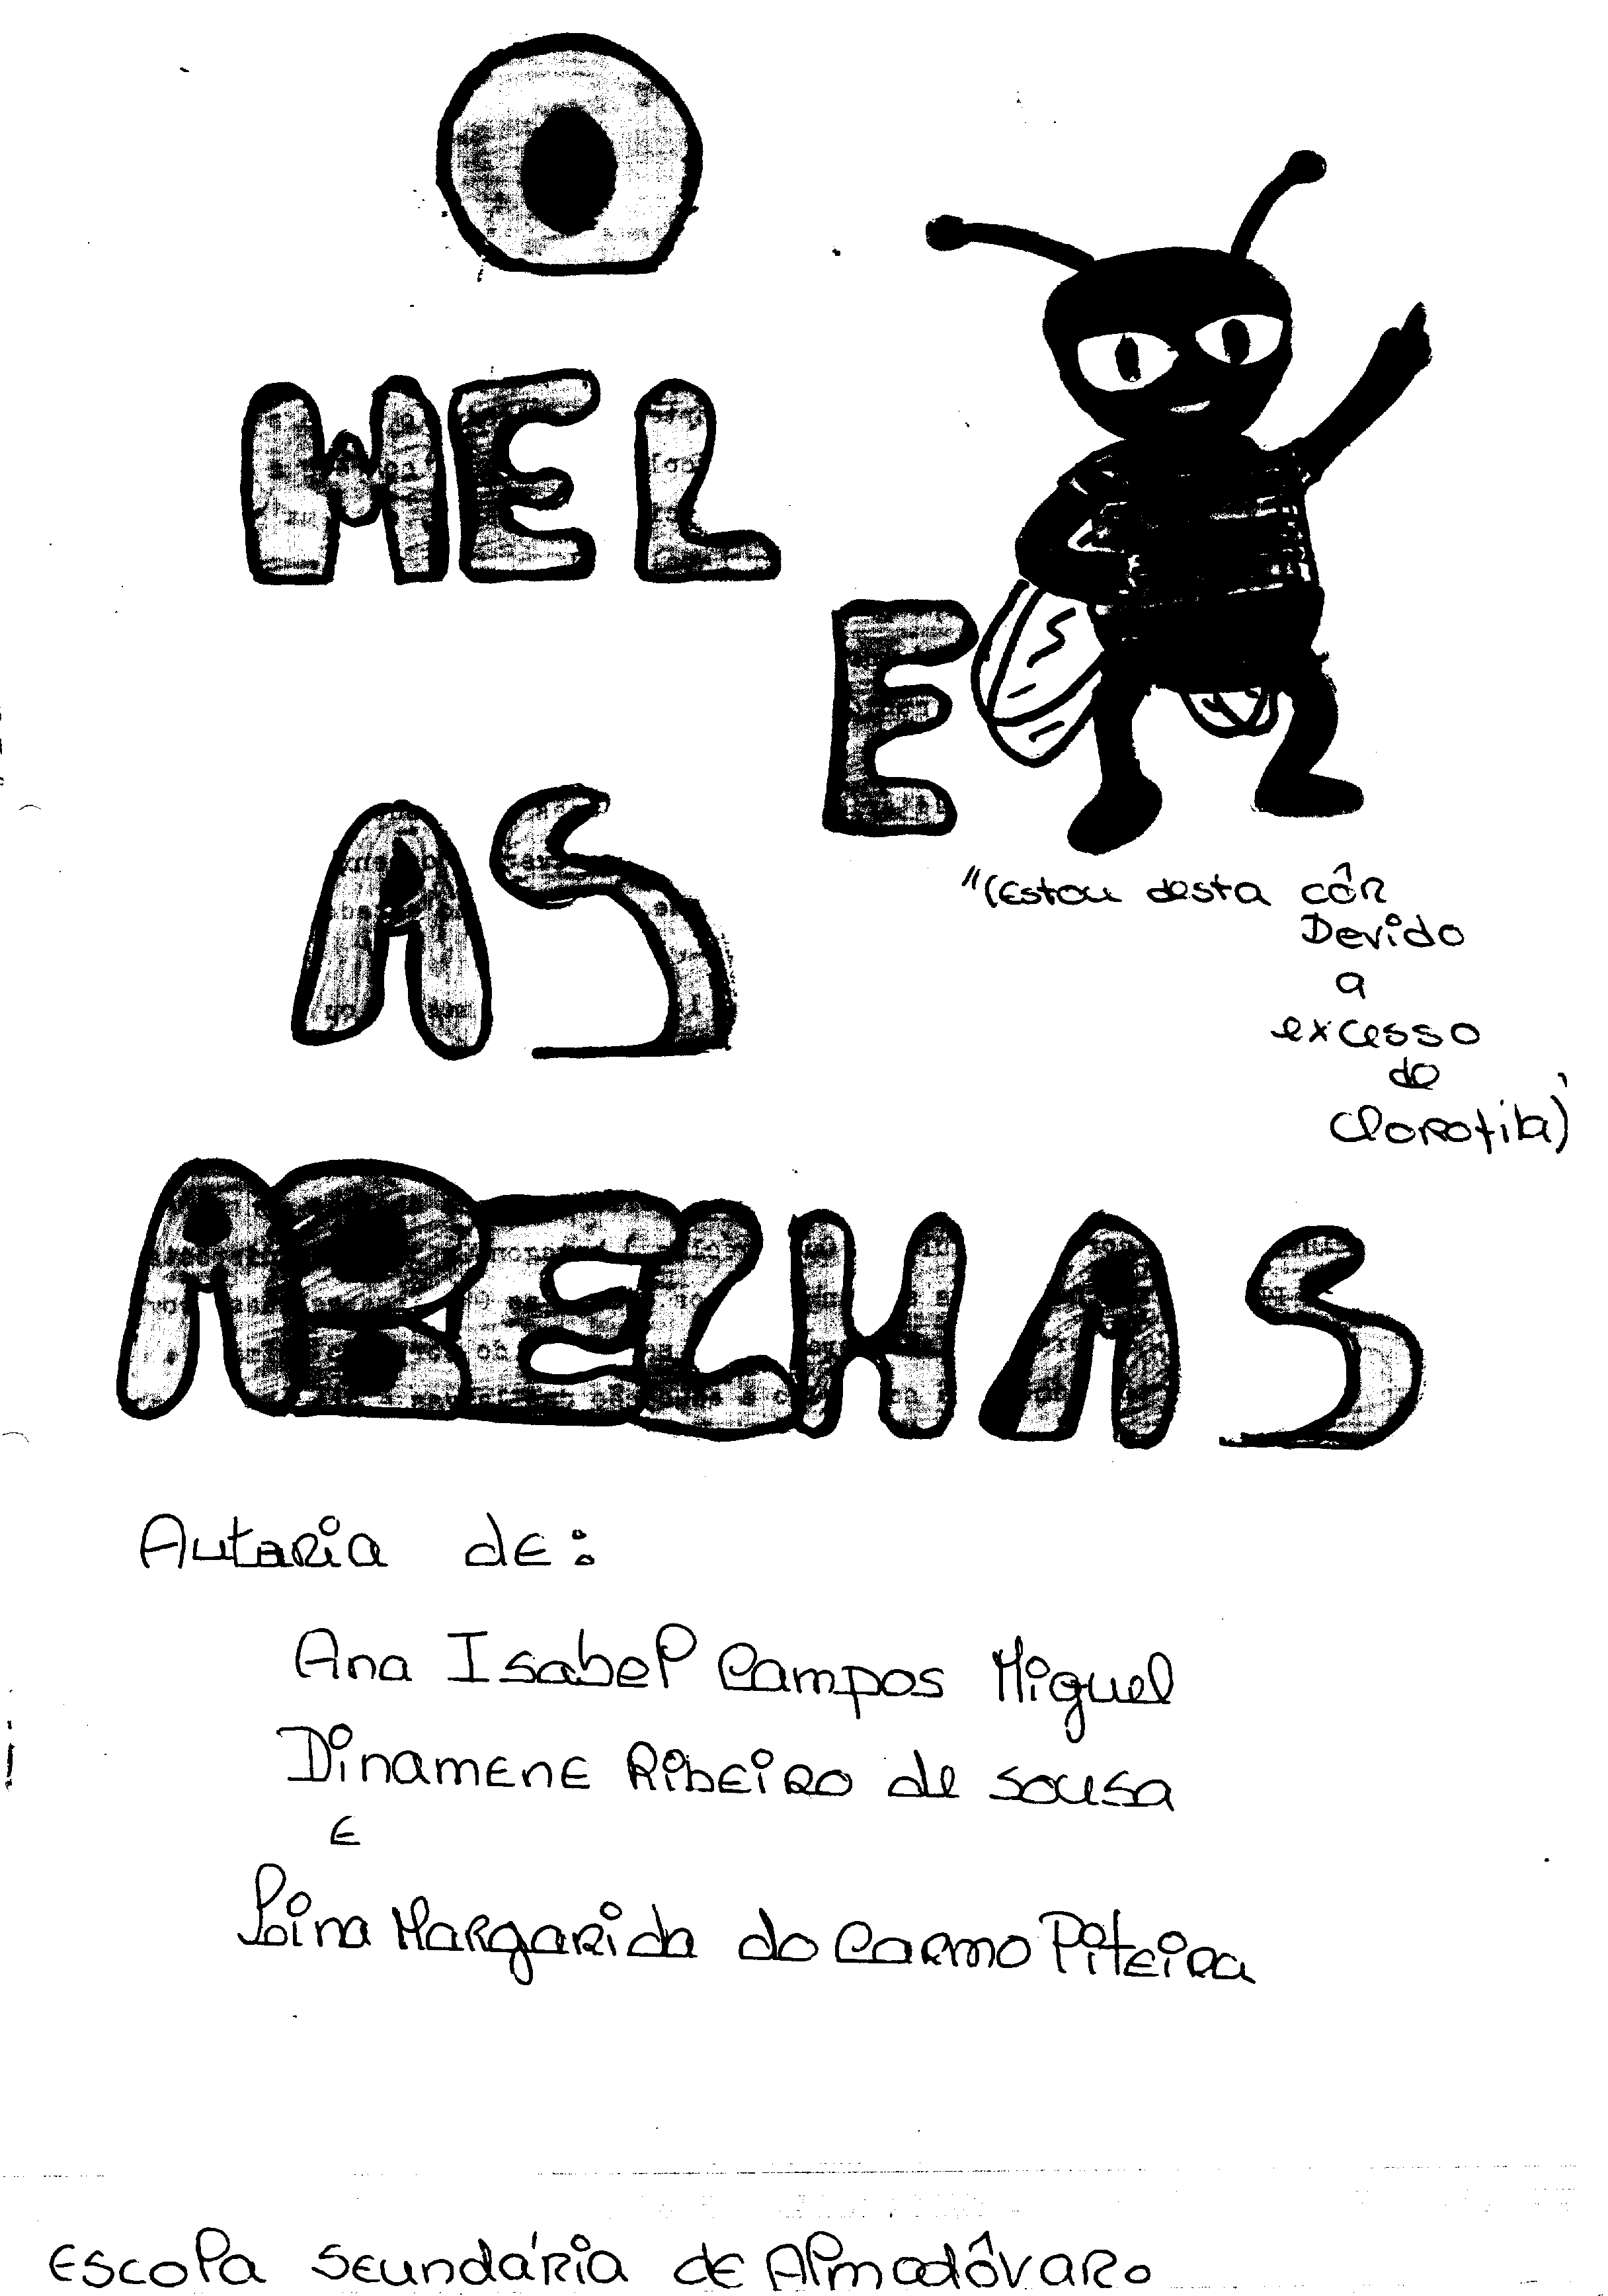 O
MEL
E
AS
"(Estou desta côr
Devido
a
excesso
de
Clorofila)
ABELHAS
Autoria de:
Ana Isabel Campos Miguel
Dinamene Ribeiro de Sousa
E
Margarida do Carmo Piteira
Escola Seundária de Almodôvar